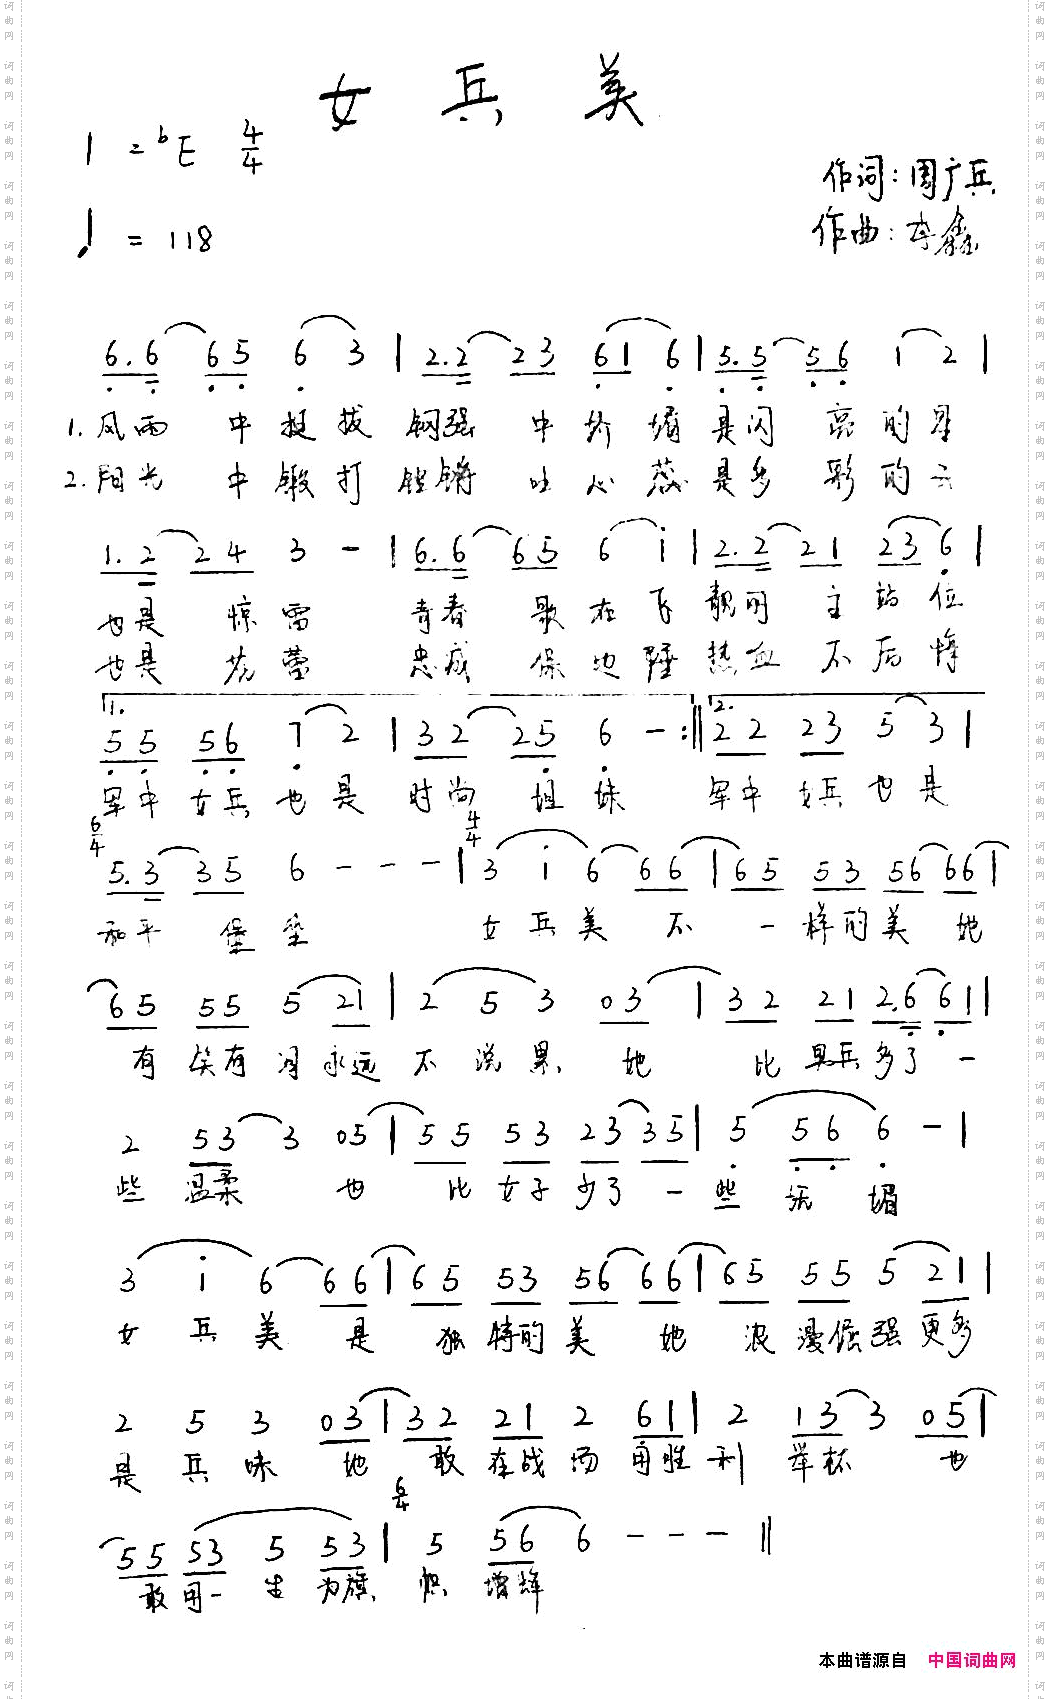 女兵美
1=♭E 4/4
作词:周广兵
♩=118
作曲:李鑫
6.6 65 6 3 | 2.2 23 61 6 | 5.5 56 1 2 |
1.风雨 中挺拔 钢强 中娇媚 是闪 亮的星
2.阳光 中锻打 铿锵 吐心蕊 是多 彩的云
1.2 24 3 - | 6.6 65 6 i | 2.2 21 23 6 |
也是 惊雷 青春 歌在飞 靓丽 主站位
也是 花蕾 忠诚 保边陲 热血 不后悔
1. 2.
55 56 7 2 | 32 25 6 - :|| 22 23 5 3 |
军中 女兵 也是 时尚 姐妹 军中 女兵 也是
6/4 4/4
5.3 35 6 - - - | 3 i 6 66 | 65 53 56 66 |
和平 堡垒 女兵美 不 一样的美 她
65 55 5 21 | 2 5 3 03 | 32 21 2.6 61 |
有笑有泪永远 不说累 她 比男兵多了一
2 53 3 05 | 55 53 23 35 | 5 56 6 - |
些 温柔 也 比女子少了一 些妩媚
3 i 6 66 | 65 53 56 66 | 65 55 5 21 |
女兵美 是 独特的美 她 浪漫倔强更多
2 5 3 03 | 32 21 2 61 | 2 13 3 05 |
是兵味 她 敢在战场用胜利 举杯 也
6/4
55 53 5 53 | 5 56 6 - - - ||
敢用一生为旗帜 增辉
本曲谱源自 中国词曲网